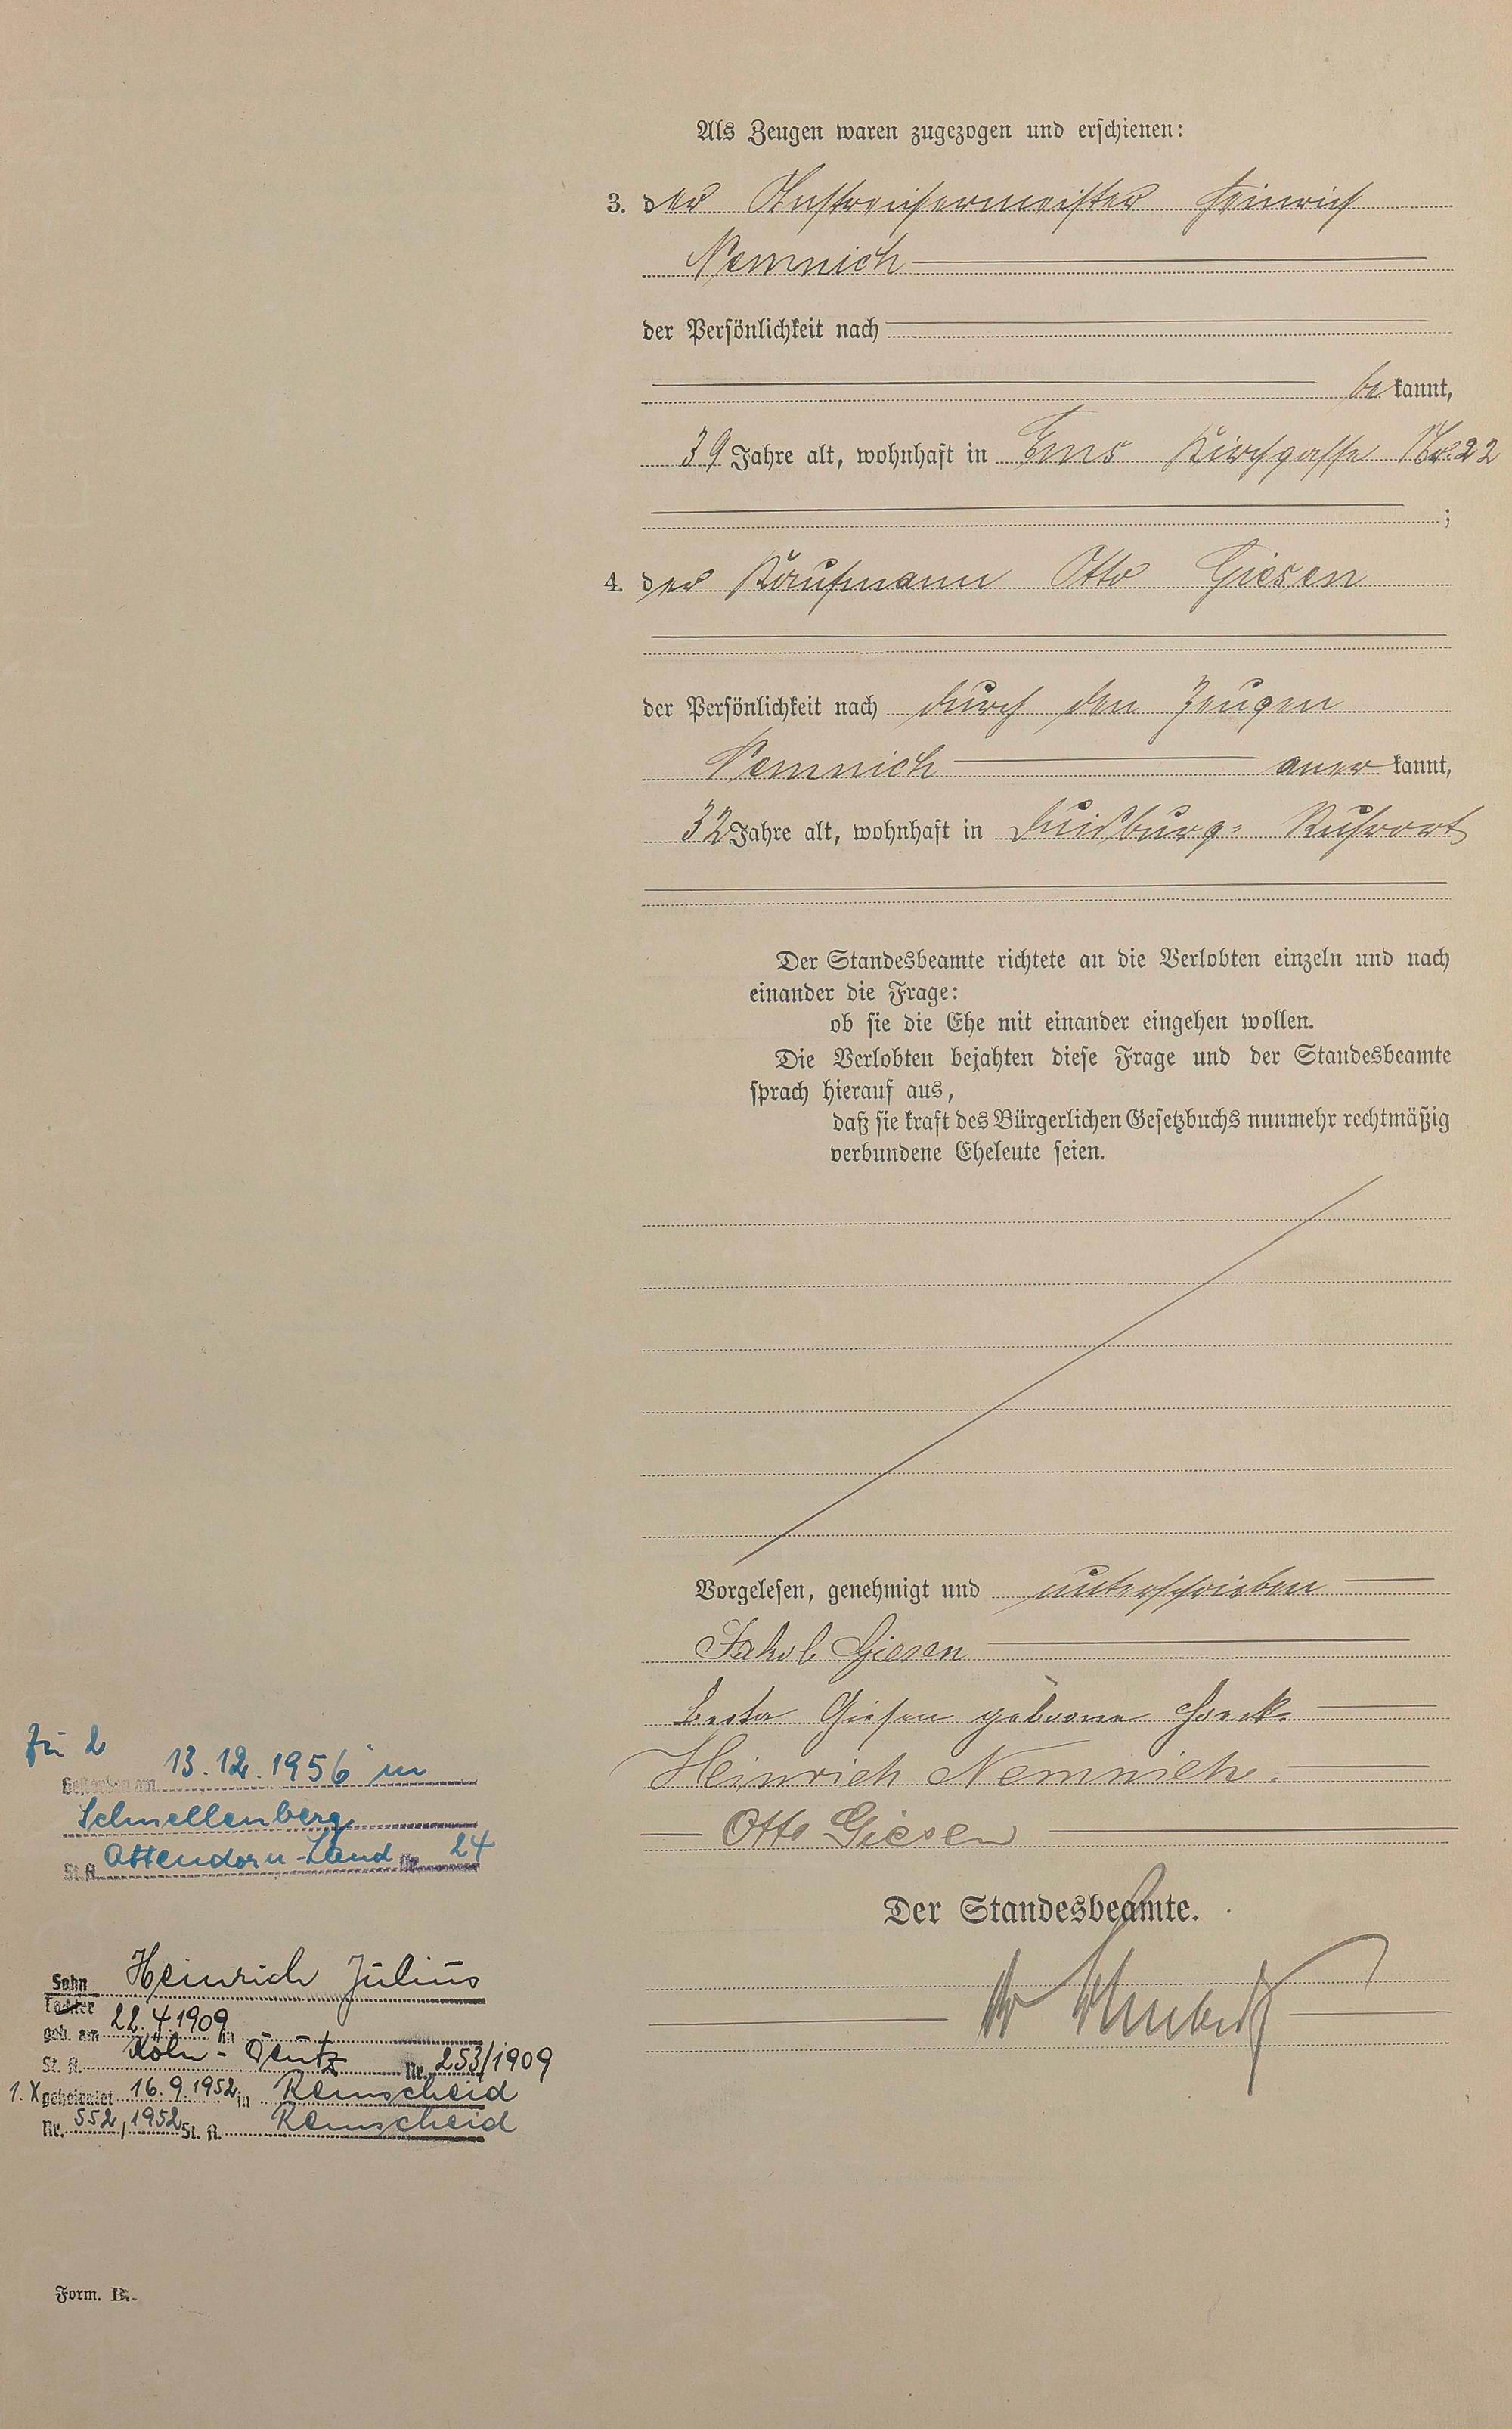 Als Zeugen waren zugezogen und erschienen:
3. der Anstreichermeister Heinrich
Nemnich
der Persönlichkeit nach
bekannt,
39 Jahre alt, wohnhaft in Ems Kirchgasse No. 22
;
4. der Kaufmann Otto Giesen
der Persönlichkeit nach durch den Zeugen
Nemnich anerkannt,
32 Jahre alt, wohnhaft in Duisburg-Ruhrort
Der Standesbeamte richtete an die Verlobten einzeln und nach
einander die Frage:
ob sie die Ehe mit einander eingehen wollen.
Die Verlobten bejahten diese Frage und der Standesbeamte
sprach hierauf aus,
daß sie kraft des Bürgerlichen Gesetzbuchs nunmehr rechtmäßig
verbundene Eheleute seien.
Vorgelesen, genehmigt und unterschrieben
Jakob Giesen
Giesen geborene
Heinrich Nemnich.
Otto Giesen
Der Standesbeamte.
Zu 2
Gestorben am 13.12.1956 in
Schnellenberg
St.A. Attendorn-Land Nr. 24
Sohn Heinrich Julius
Tochter
geb. am 22.4.1909 in
St. A. Köln-Deutz Nr. 253/1909
1. X geheiratet 16.9.1952 in Remscheid
Nr. 552/1952 St. A. Remscheid
Form. B.